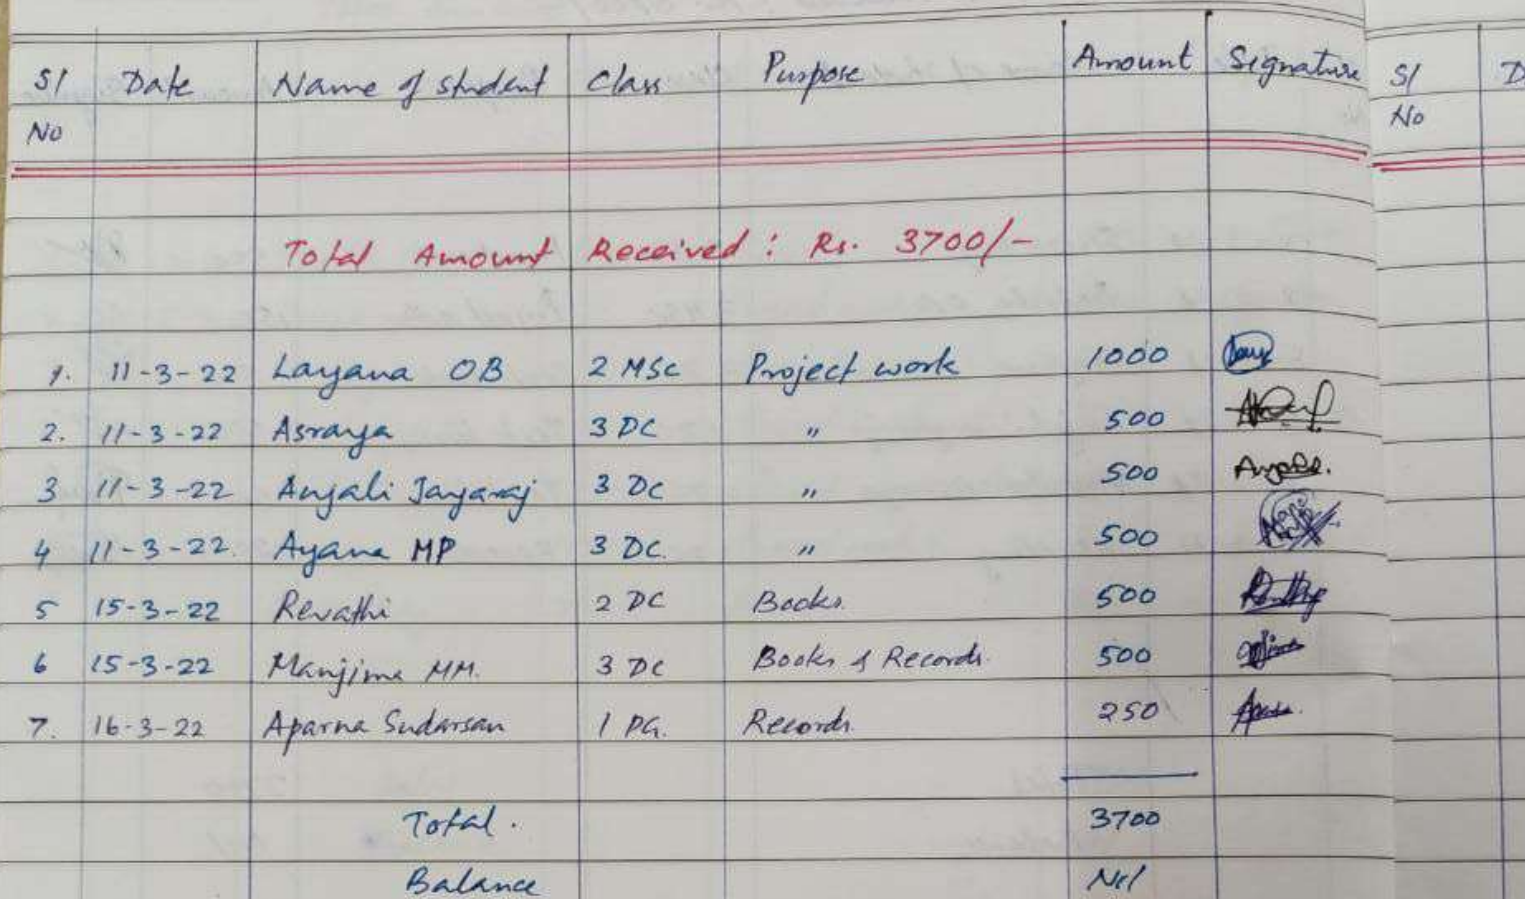 Sl No Date Name of student Class Purpose Amount Signature Sl No D
Total Amount Received : Rs. 3700/-
1. 11-3-22 Layana OB 2 MSc Project work 1000
2. 11-3-22 Asraya 3 DC " 500
3 11-3-22 Anjali Jayaraj 3 DC " 500
4 11-3-22. Ayana MP 3 DC. " 500
5 15-3-22 Revathi 2 DC Books. 500
6 15-3-22 Manjima MM. 3 DC Books & Records. 500
7. 16-3-22 Aparna Sudarsan 1 PG. Records. 250
Total. 3700
Balance Nil